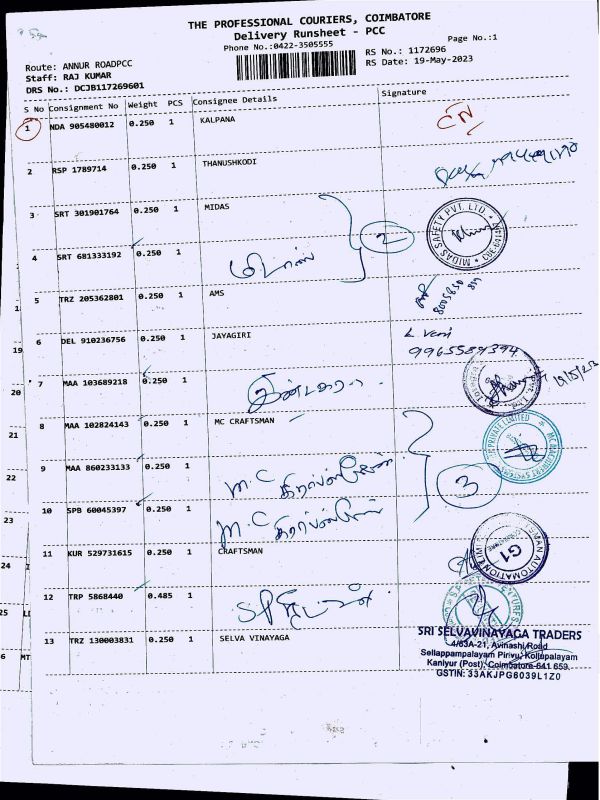 THE PROFESSIONAL COURIERS, COIMBATORE
Delivery Runsheet - PCC
Phone No.:0422-3505555
Page No.:1
Route: ANNUR ROADPCC
RS No.: 1172696
Staff: RAJ KUMAR
RS Date: 19-May-2023
DRS No.: DCJB117269601
S No Consignment No Weight PCS Consignee Details Signature
1 NDA 905480012 0.250 1 KALPANA
2 RSP 1789714 0.250 1 THANUSHKODI
3 SRT 301901764 0.250 1 MIDAS
2
MIDAS SAFETY PVT. LTD.
4 SRT 681333192 0.250 1 மிடாஸ்
5 TRZ 205362801 0.250 1 AMS
6 DEL 910236756 0.250 1 JAYAGIRI
L Veni
9965589394
7 MAA 103689218 0.250 1
19/5/23
8 MAA 102824143 0.250 1 MC CRAFTSMAN
9 MAA 860233133 0.250 1 M.C
3
10 SPB 60045397 0.250 1 M.C
11 KUR 529731615 0.250 1 CRAFTSMAN
G1
12 TRP 5868440 0.485 1
13 TRZ 130003831 0.250 1 SELVA VINAYAGA
SRI SELVAVINAYAGA TRADERS
4/63A-21, Avinashi Road
Sellappampalayam Pirivu, Kollupalayam
Kaniyur (Post), Coimbatore-641 659.
GSTIN: 33AKJPG6039L1Z0
19
20
21
22
23
24
25